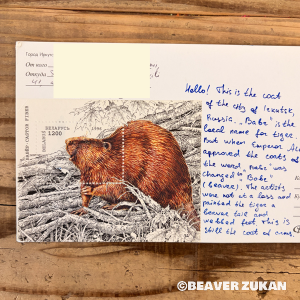 Город Иркутск
От кого
Откуда
БЕЛАРУСЬ
BELARUS
1200
1996
CASTOR FIBER
Hello! This is the coat
of the city of Irkutsk,
Russia. „Babr" is the
local name for tiger.
But when Emperor
approved the coats of
the word „Babr" was
changed to „Bobr"
(beaver). The artists
were not at a loss and
painted the tiger a
beaver tail and
webbed feet. This is
still the coat of arms
©BEAVER ZUKAN